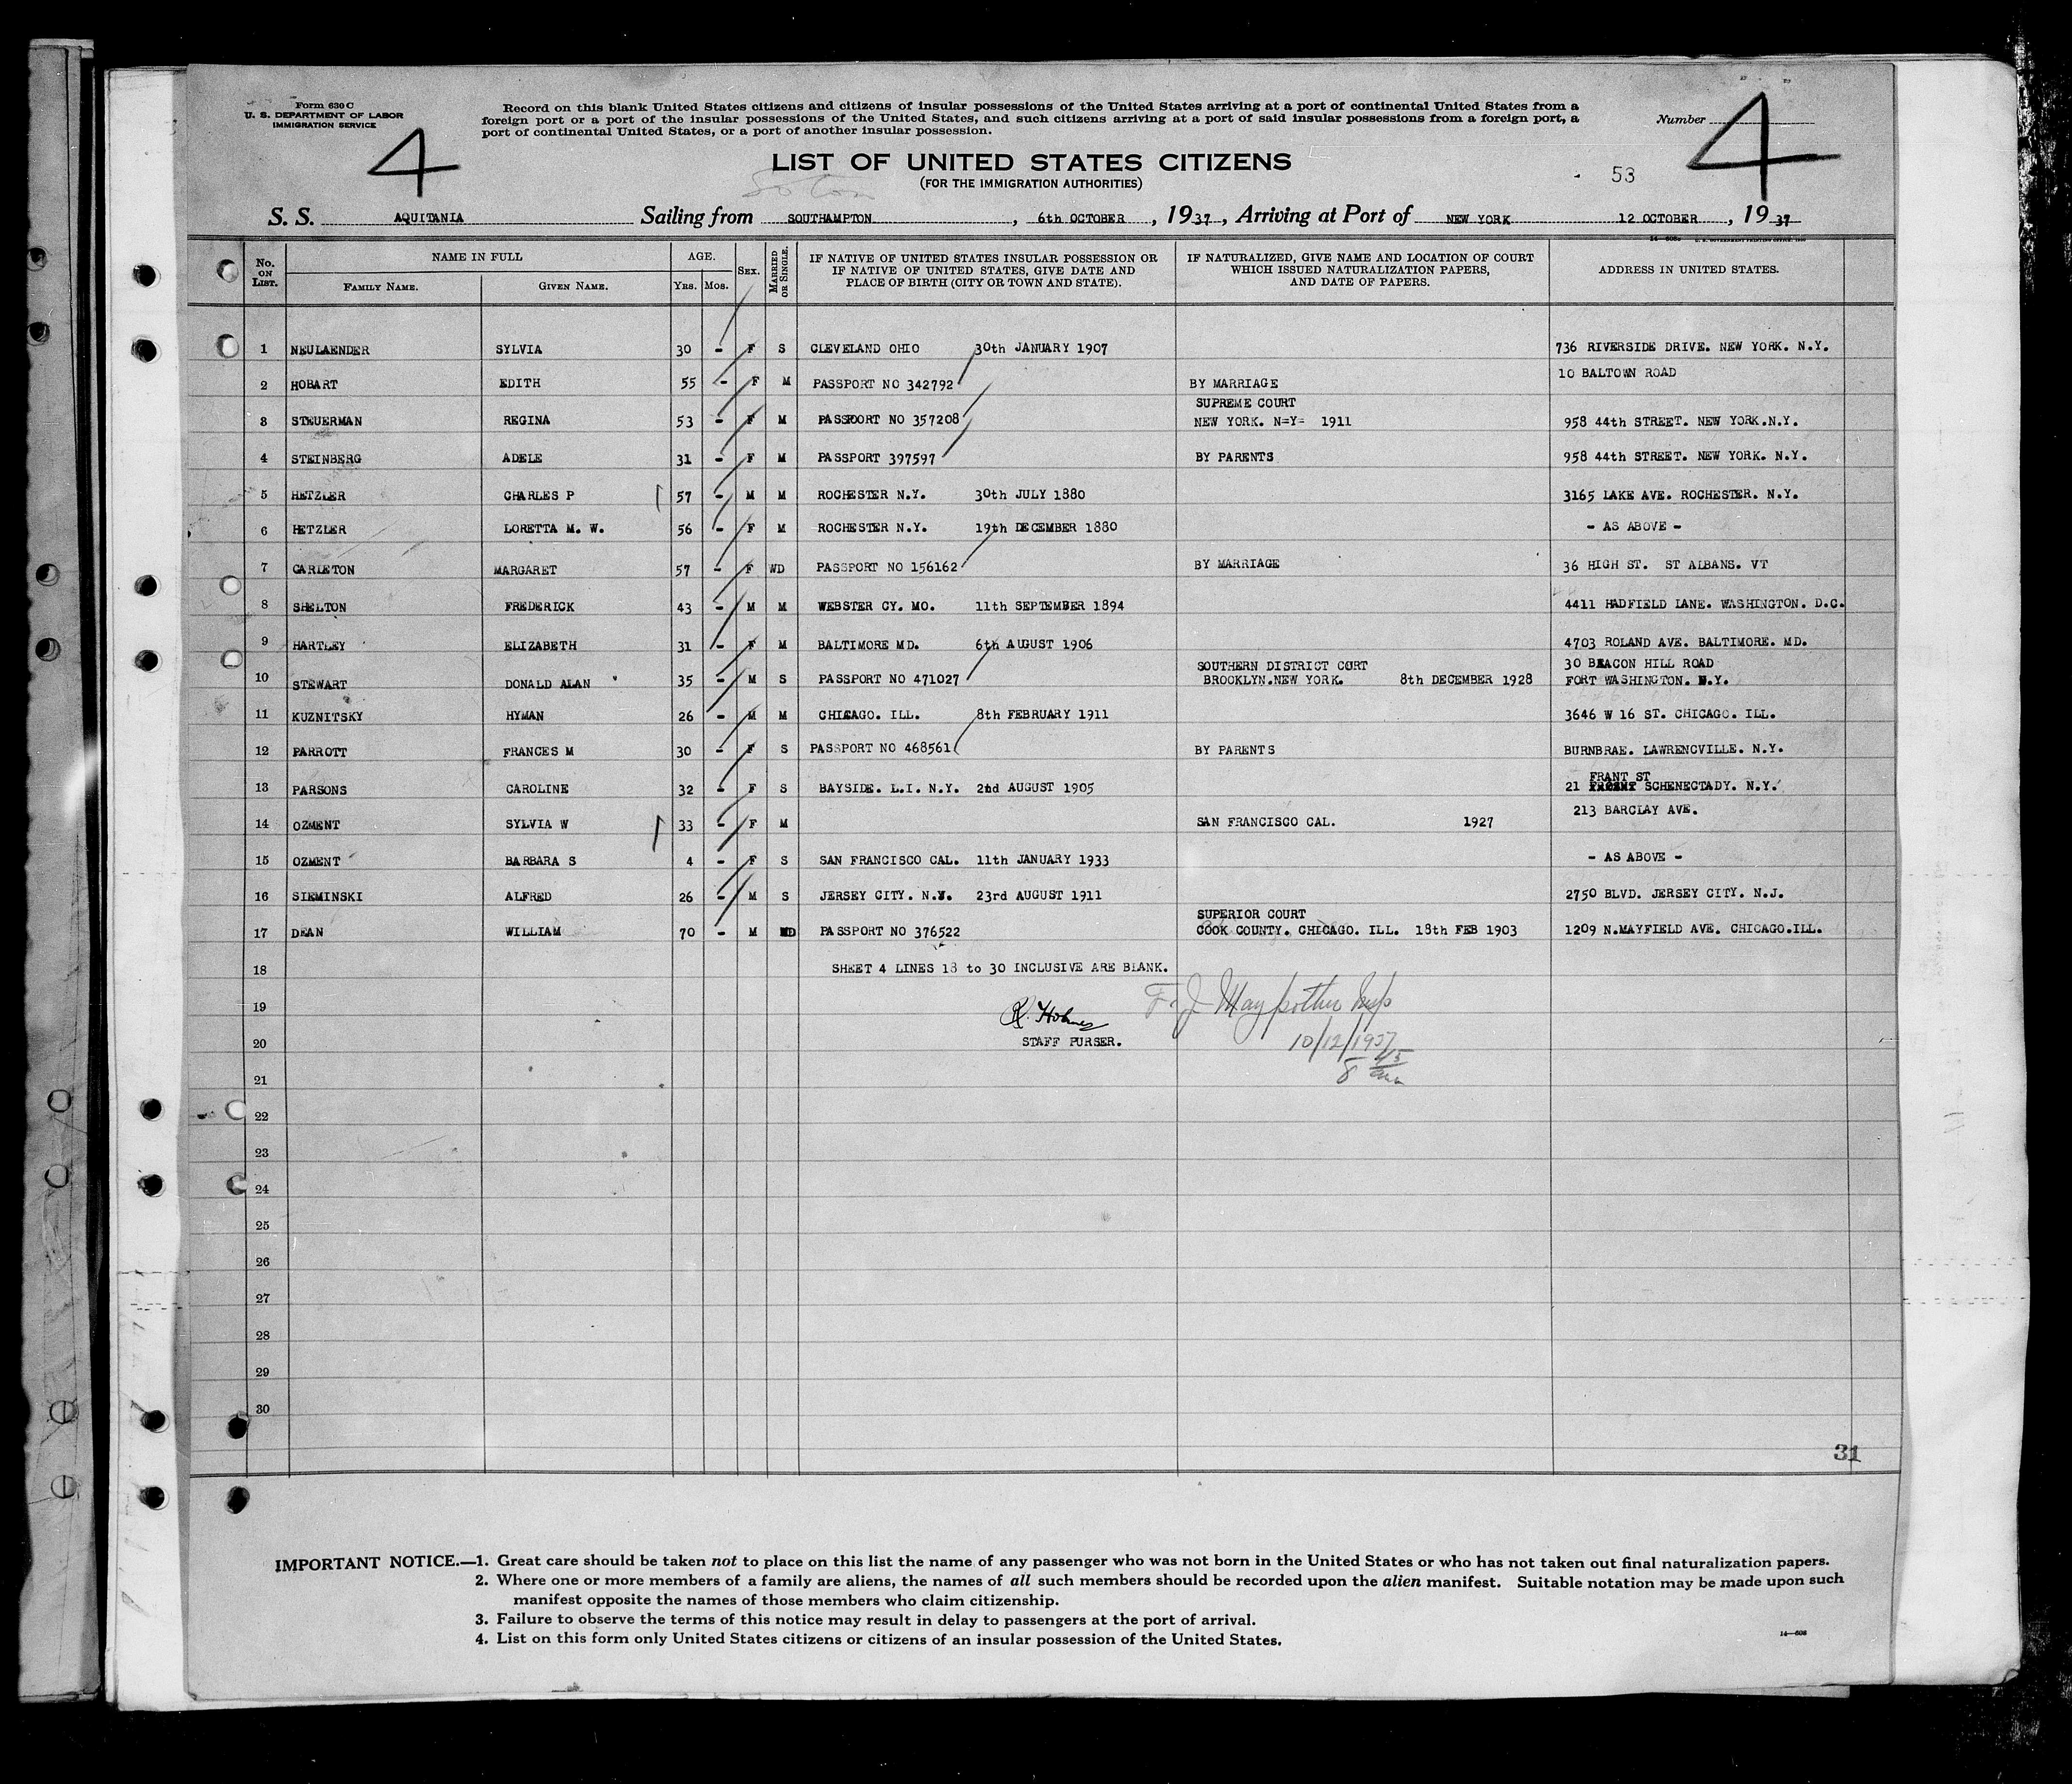 Form 630 C
U. S. DEPARTMENT OF LABOR
IMMIGRATION SERVICE
Record on this blank United States citizens and citizens of insular possessions of the United States arriving at a port of continental United States from a
foreign port or a port of the insular possessions of the United States, and such citizens arriving at a port of said insular possessions from a foreign port, a
port of continental United States, or a port of another insular possession.
Number 4
4
LIST OF UNITED STATES CITIZENS
(FOR THE IMMIGRATION AUTHORITIES)
53
S. S. AQUITANIA Sailing from SOUTHAMPTON, 6th OCTOBER, 1937, Arriving at Port of NEW YORK 12 OCTOBER, 1937
No. ON LIST. NAME IN FULL FAMILY NAME. GIVEN NAME. AGE. YRS. MOS. SEX. MARRIED OR SINGLE. IF NATIVE OF UNITED STATES INSULAR POSSESSION OR IF NATIVE OF UNITED STATES, GIVE DATE AND PLACE OF BIRTH (CITY OR TOWN AND STATE). IF NATURALIZED, GIVE NAME AND LOCATION OF COURT WHICH ISSUED NATURALIZATION PAPERS, AND DATE OF PAPERS. ADDRESS IN UNITED STATES.
1 NEULAENDER SYLVIA 30 - F S CLEVELAND OHIO 30th JANUARY 1907 736 RIVERSIDE DRIVE. NEW YORK. N.Y.
2 HOBART EDITH 55 - F M PASSPORT NO 342792 BY MARRIAGE 10 BALTOWN ROAD
SUPREME COURT
3 STEUERMAN REGINA 53 - F M PASSPORT NO 357208 NEW YORK. N=Y= 1911 958 44th STREET. NEW YORK.N.Y.
4 STEINBERG ADELE 31 - F M PASSPORT 397597 BY PARENTS 958 44th STREET. NEW YORK. N.Y.
5 HETZLER CHARLES P 57 - M M ROCHESTER N.Y. 30th JULY 1880 3165 LAKE AVE. ROCHESTER. N.Y.
6 HETZLER LORETTA M. W. 56 - F M ROCHESTER N.Y. 19th DECEMBER 1880 - AS ABOVE -
7 CARLETON MARGARET 57 - F WD PASSPORT NO 156162 BY MARRIAGE 36 HIGH ST. ST ALBANS. VT
8 SHELTON FREDERICK 43 - M M WEBSTER CY. MO. 11th SEPTEMBER 1894 4411 HADFIELD LANE. WASHINGTON. D.C.
9 HARTLEY ELIZABETH 31 - F M BALTIMORE MD. 6th AUGUST 1906 4703 ROLAND AVE. BALTIMORE. MD.
SOUTHERN DISTRICT CORT 30 BEACON HILL ROAD
10 STEWART DONALD ALAN 35 - M S PASSPORT NO 471027 BROOKLYN.NEW YORK. 8th DECEMBER 1928 FORT WASHINGTON. N.Y.
11 KUZNITSKY HYMAN 26 - M M CHICAGO. ILL. 8th FEBRUARY 1911 3646 W 16 ST. CHICAGO. ILL.
12 PARROTT FRANCES M 30 - F S PASSPORT NO 468561 BY PARENTS BURNBRAE. LAWRENCVILLE. N.Y.
FRANT ST
13 PARSONS CAROLINE 32 - F S BAYSIDE. L.I. N.Y. 2nd AUGUST 1905 21 SCHENECTADY. N.Y.
14 OZMENT SYLVIA W 33 - F M SAN FRANCISCO CAL. 1927 213 BARCLAY AVE.
15 OZMENT BARBARA S 4 - F S SAN FRANCISCO CAL. 11th JANUARY 1933 - AS ABOVE -
16 SIEMINSKI ALFRED 26 - M S JERSEY CITY. N.J. 23rd AUGUST 1911 2750 BLVD. JERSEY CITY. N.J.
SUPERIOR COURT
17 DEAN WILLIAM 70 - M WD PASSPORT NO 376522 COOK COUNTY. CHICAGO. ILL. 18th FEB 1903 1209 N.MAYFIELD AVE. CHICAGO.ILL.
18 SHEET 4 LINES 18 to 30 INCLUSIVE ARE BLANK.
19
20 STAFF PURSER. 10/12/1937
21
22
23
24
25
26
27
28
29
30
31
IMPORTANT NOTICE.—1. Great care should be taken not to place on this list the name of any passenger who was not born in the United States or who has not taken out final naturalization papers.
2. Where one or more members of a family are aliens, the names of all such members should be recorded upon the alien manifest. Suitable notation may be made upon such
manifest opposite the names of those who claim citizenship.
3. Failure to observe the terms of this notice may result in delay to passengers at the port of arrival.
4. List on this form only United States citizens or citizens of an insular possession of the United States.
14—608